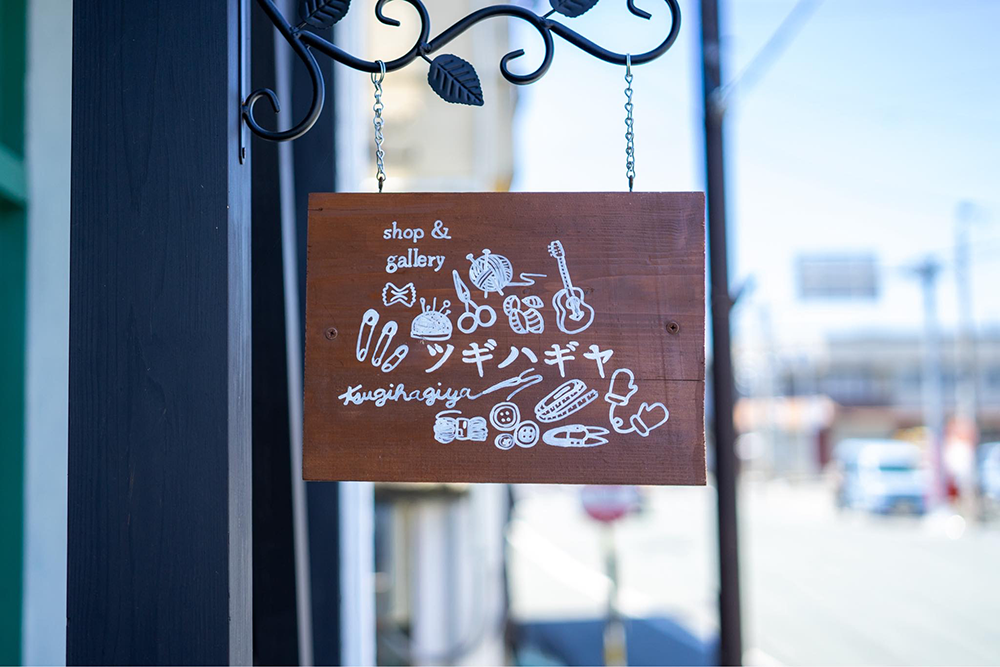 shop &
gallery
ツギハギヤ
tsugihagiya